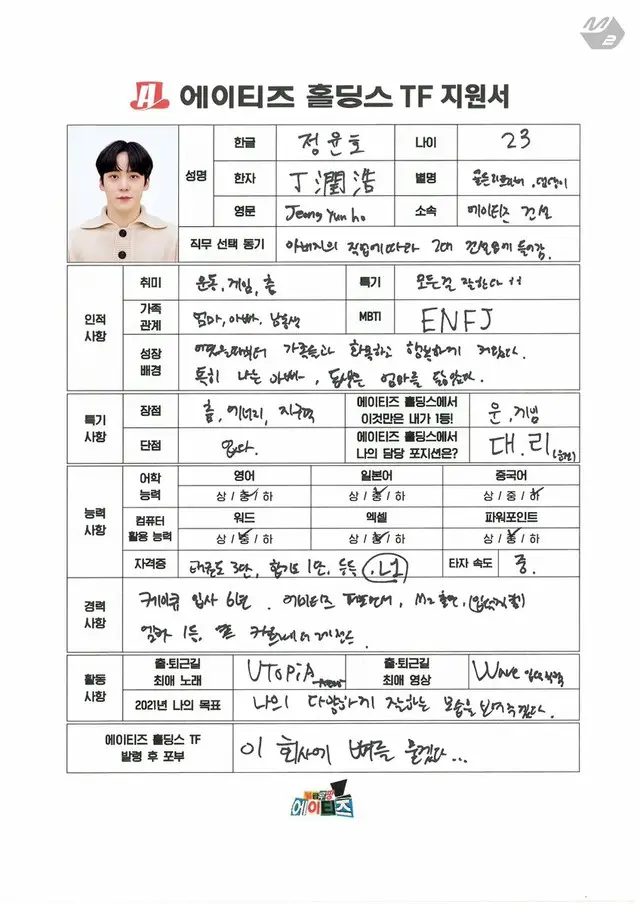 M2
A 에이티즈 홀딩스 TF 지원서
성명 한글 정윤호 나이 23
한자 丁潤浩 별명
영문 Jeong Yun ho 소속 에이티즈 건설
직무 선택 동기 아버지의 직업에 따라 2대 건설업에 들어감.
인적 사항 취미 운동, 게임, 춤 특기 모든걸 잘한다
가족 관계 엄마, 아빠, 남동생 MBTI ENFJ
성장 배경 어렸을때부터 가족들과 화목하고 행복하게 커왔다.
특히 나는 아빠, 동생은 엄마를 닮았다.
특기 사항 장점 춤, 에너지, 지구력 에이티즈 홀딩스에서 이것만은 내가 1등! 운, 게임
단점 없다. 에이티즈 홀딩스에서 나의 담당 포지션은? 대.리
능력 사항 어학 능력 영어 일본어 중국어
상 / 중 / 하 상 / 중 / 하 상 / 중 / 하
컴퓨터 활용 능력 워드 엑셀 파워포인트
상 / 중 / 하 상 / 중 / 하 상 / 중 / 하
자격증 태권도 3단, 합기도 1단, 등등 타자 속도 중.
경력 사항 케이큐 입사 6년. 에이티즈 퍼포먼서, M2 출연,
1등,
활동 사항 출·퇴근길 최애 노래 UTOPIA 출·퇴근길 최애 영상 Wave
2021년 나의 목표 나의 다양하게 잘하는 모습을 보여주겠다.
에이티즈 홀딩스 TF 발령 후 포부 이 회사에 뼈를 묻겠다...
에이티즈